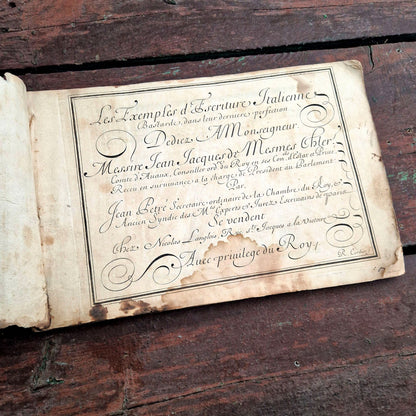 Les Exemples d'Escriture Italienne
Bastarde, dans leur derniere perfection
Dediez A Monseigneur
Messire Jean Jacques de Mesmes Chler.
Comte d'Auaux, Conseiller ord.re du Roy en ses Con.ls d'Estat et Priué
Receu en suruiuance a la charge de President au Parlement
Par
Jean Petré Secretaire ordinaire de la Chambre du Roy, &
Ancien Syndic des M.es Expertz et Jurez Escriuains de paris
Se vendent
Chez Nicolas Langlois, Rüe St. Jacques a la Victoire
Auec priuilege du Roy